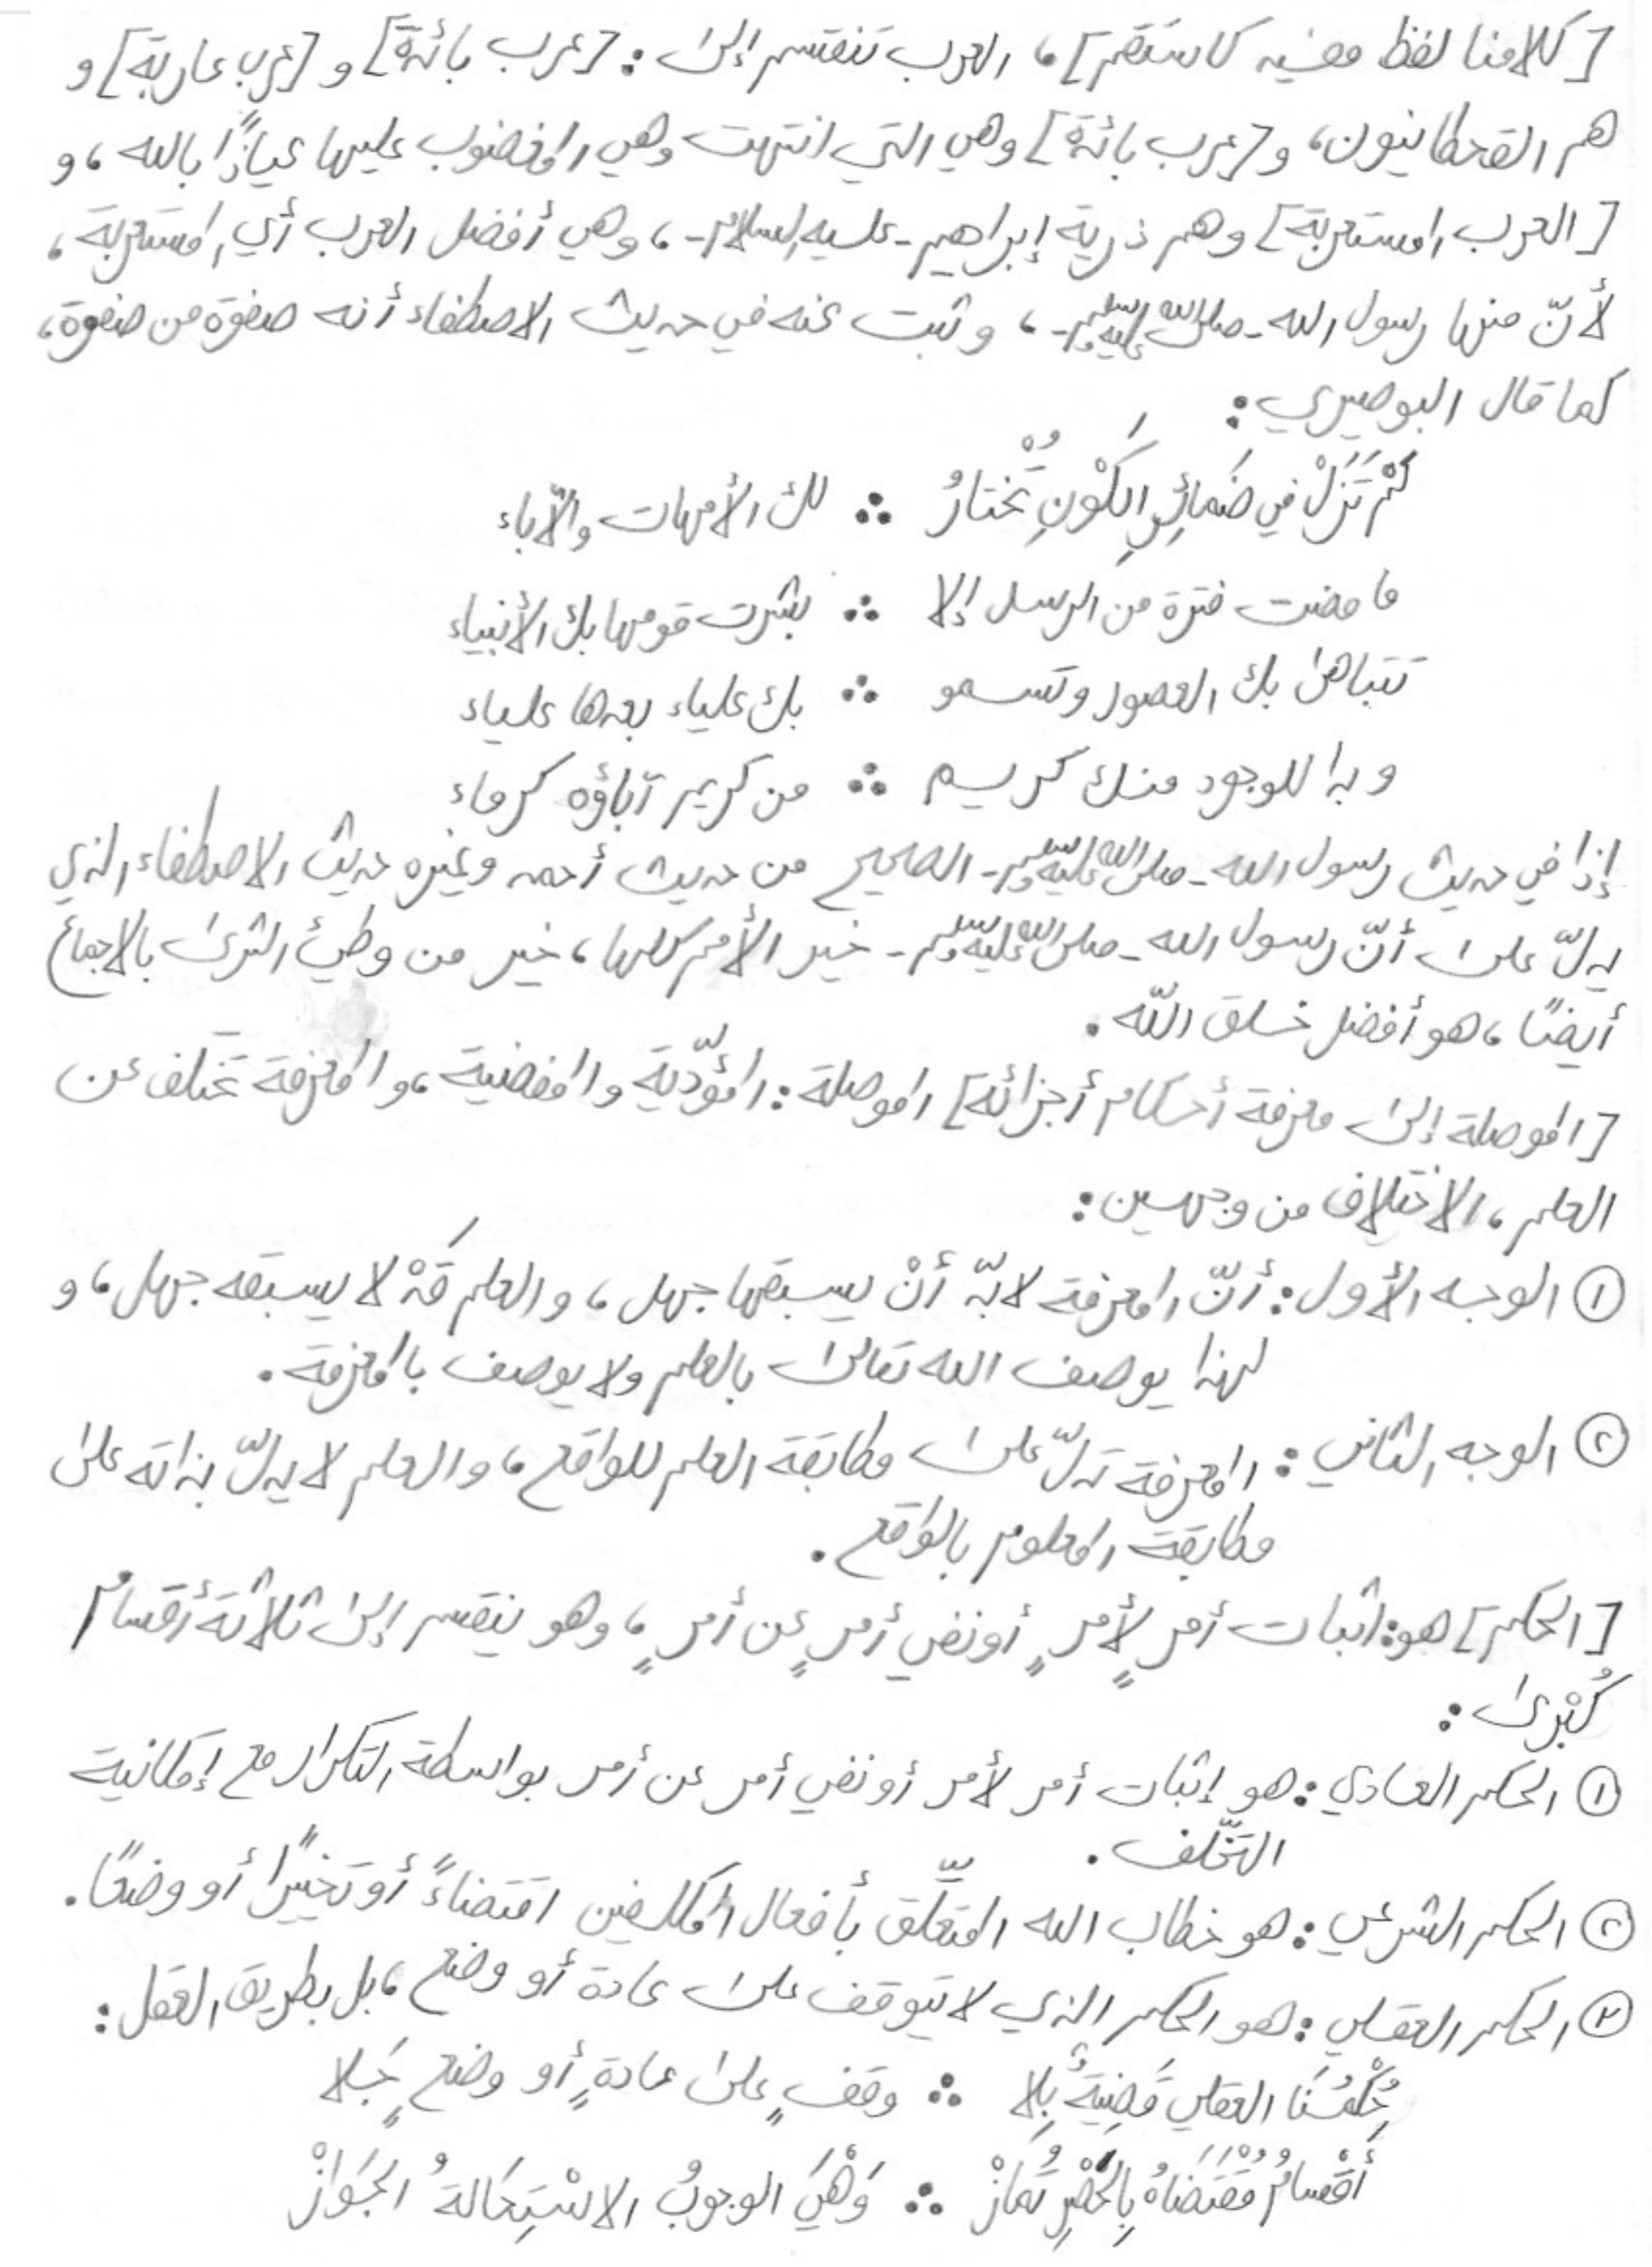 [كلامنا لفظ مفيد كاستقم]، العرب تنقسم إلى: [عرب بائدة] و [عرب عاربة] و
هم القحطانيون، و [عرب بائدة] وهي التي انتهت وهي المغضوب عليها عياذًا بالله، و
[العرب المستعربة] وهم ذرية إبراهيم - عليه السلام -، وهي أفضل العرب أي المستعربة،
لأنّ منها رسول الله - صلى الله عليه وسلم -، وثبت عنه في حديث الاصطفاء أنه صفوة من صفوة،
كما قال البوصيري:
لَمْ تَزَلْ في ضَمائِرِ الكَوْنِ تُخْتَارُ ∴ لك الأمهات والآباء
ما مضت فترة من الرسل إلا ∴ بشرت قومها بك الأنبياء
تتباهى بك العصور وتسمو ∴ بك علياء بعدها علياء
وبدا للوجود منك كريم ∴ من كريم آباؤه كرماء
إذًا في حديث رسول الله - صلى الله عليه وسلم - الصحيح من حديث أحمد وغيره حديث الاصطفاء الذي
يدلّ على أنّ رسول الله - صلى الله عليه وسلم - خير الأمم كلها، خير من وطئ الثرى بالاجماع
أيضًا، هو أفضل خلق اللّه.
[الموصلة إلى معرفة أحكام أجزائه] الموصلة: المؤدّية والمفضية، والمعرفة تختلف عن
العلم، الاختلاف من وجهين:
① الوجه الأول: أنّ المعرفة لابدّ أنْ يسبقها جهل، والعلم قَدْ لا يسبقه جهل، و
لهذا يوصف الله تعالى بالعلم ولا يوصف بالمعرفة.
② الوجه الثاني: المعرفة تدلّ على مطابقة العلم للواقع، والعلم لا يدلّ بذاته على
مطابقة المعلوم بالواقع.
[الحكم] هو: اثبات أمرٍ لأمرٍ أو نفي أمرٍ عن أمرٍ، وهو ينقسم إلى ثلاثة أقسام
كُبْرى:
① الحكم العادي: هو إثبات أمر لأمر أو نفي أمر عن أمر بواسطة التكرار مع إمكانية
التخّلف.
② الحكم الشرعي: هو خطاب الله المتعلّق بأفعال المكلفين اقتضاءً أو تخييرًا أو وضعًا.
③ الحكم العقلي: هو الحكم الذي لا يتوقف على عادة أو وضع، بل بطريق العقل:
حُكْمُنَا العقلي قَضِيَّةٌ بِلا ∴ وقفٍ على عادةٍ أو وضعٍ جَلا
أَقْسامُ مُقْتَضَاهُ بِالحَصْرِ تُمَازْ ∴ وَهْيَ الوجوبُ الاسْتِحَالةُ الجَوَازْ